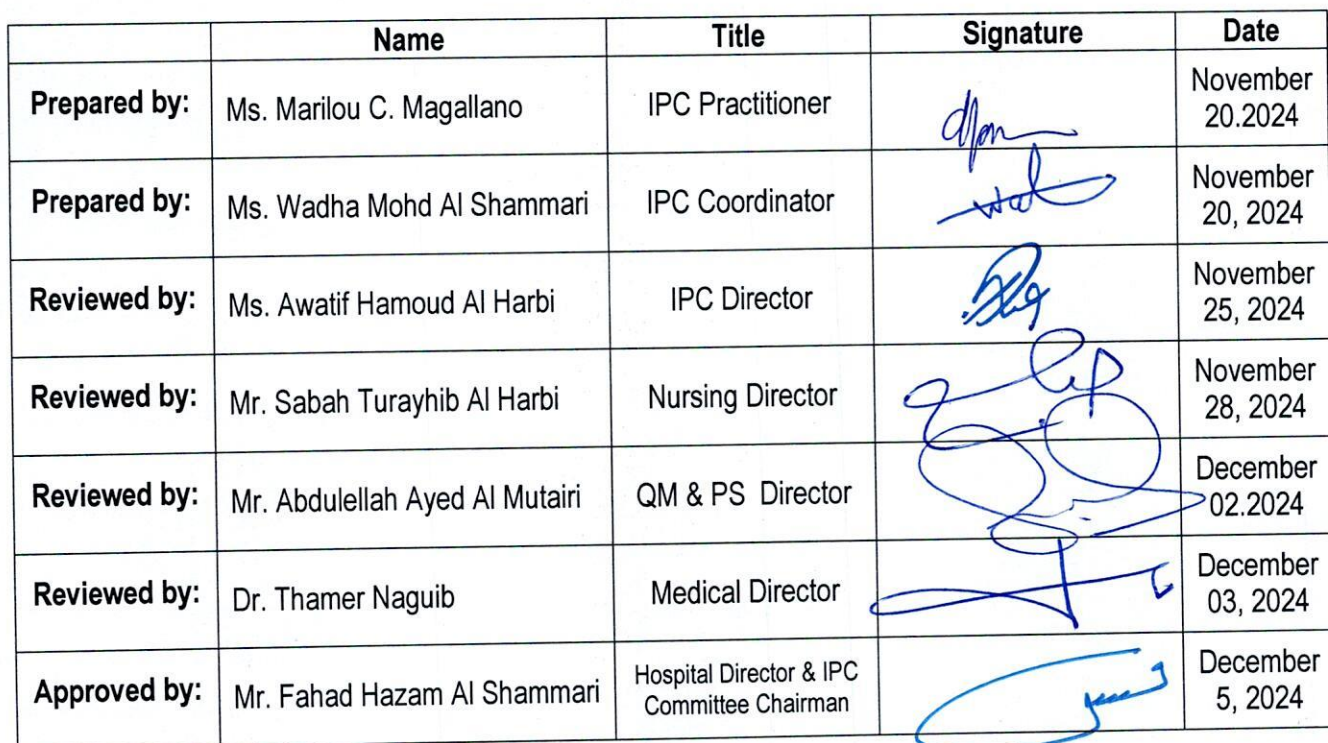 Name Title Signature Date
Prepared by: Ms. Marilou C. Magallano IPC Practitioner November 20.2024
Prepared by: Ms. Wadha Mohd Al Shammari IPC Coordinator November 20, 2024
Reviewed by: Ms. Awatif Hamoud Al Harbi IPC Director November 25, 2024
Reviewed by: Mr. Sabah Turayhib Al Harbi Nursing Director November 28, 2024
Reviewed by: Mr. Abdulellah Ayed Al Mutairi QM & PS Director December 02.2024
Reviewed by: Dr. Thamer Naguib Medical Director December 03, 2024
Approved by: Mr. Fahad Hazam Al Shammari Hospital Director & IPC Committee Chairman December 5, 2024